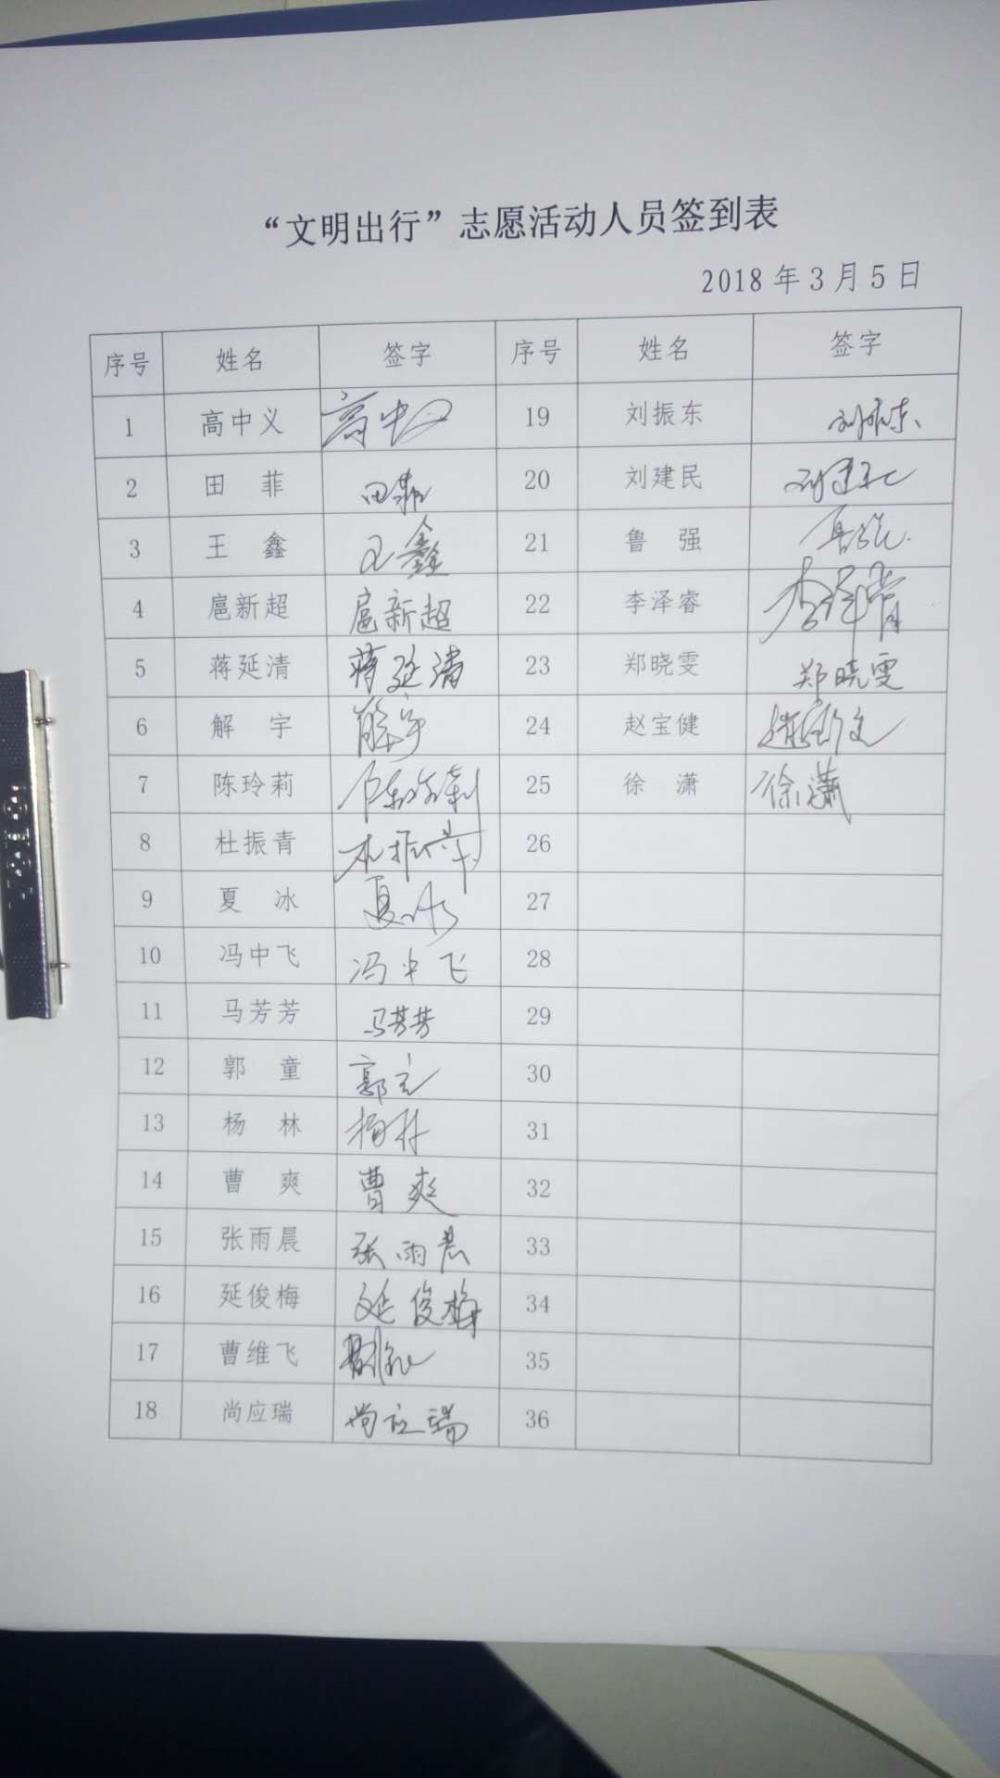 “文明出行”志愿活动人员签到表
2018年3月5日
序号 姓名 签字 序号 姓名 签字
1 高中义 高中义 19 刘振东 刘振东
2 田菲 田菲 20 刘建民 刘建民
3 王鑫 王鑫 21 鲁强 鲁强
4 扈新超 扈新超 22 李泽睿 李泽睿
5 蒋延清 蒋延清 23 郑晓雯 郑晓雯
6 解宇 解宇 24 赵宝健
7 陈玲莉 陈玲莉 25 徐潇 徐潇
8 杜振青 杜振青 26
9 夏冰 夏冰 27
10 冯中飞 冯中飞 28
11 马芳芳 马芳芳 29
12 郭童 郭童 30
13 杨林 杨林 31
14 曹爽 曹爽 32
15 张雨晨 张雨晨 33
16 延俊梅 延俊梅 34
17 曹维飞 35
18 尚应瑞 尚应瑞 36